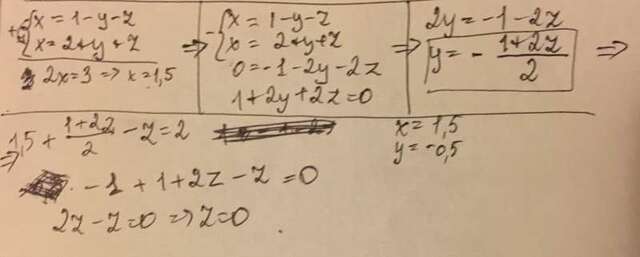 +{x = 1-y-z
x = 2+y+z
2x = 3 => x = 1,5
=>
-{x = 1-y-z
x = 2+y+z
0 = -1-2y-2z
1+2y+2z = 0
=>
2y = -1-2z
y = - (1+2z)/2
=>
=> 1,5 + (1+2z)/2 - z = 2
x = 1,5
y = -0,5
-1 + 1 + 2z - z = 0
2z - z = 0 => z = 0